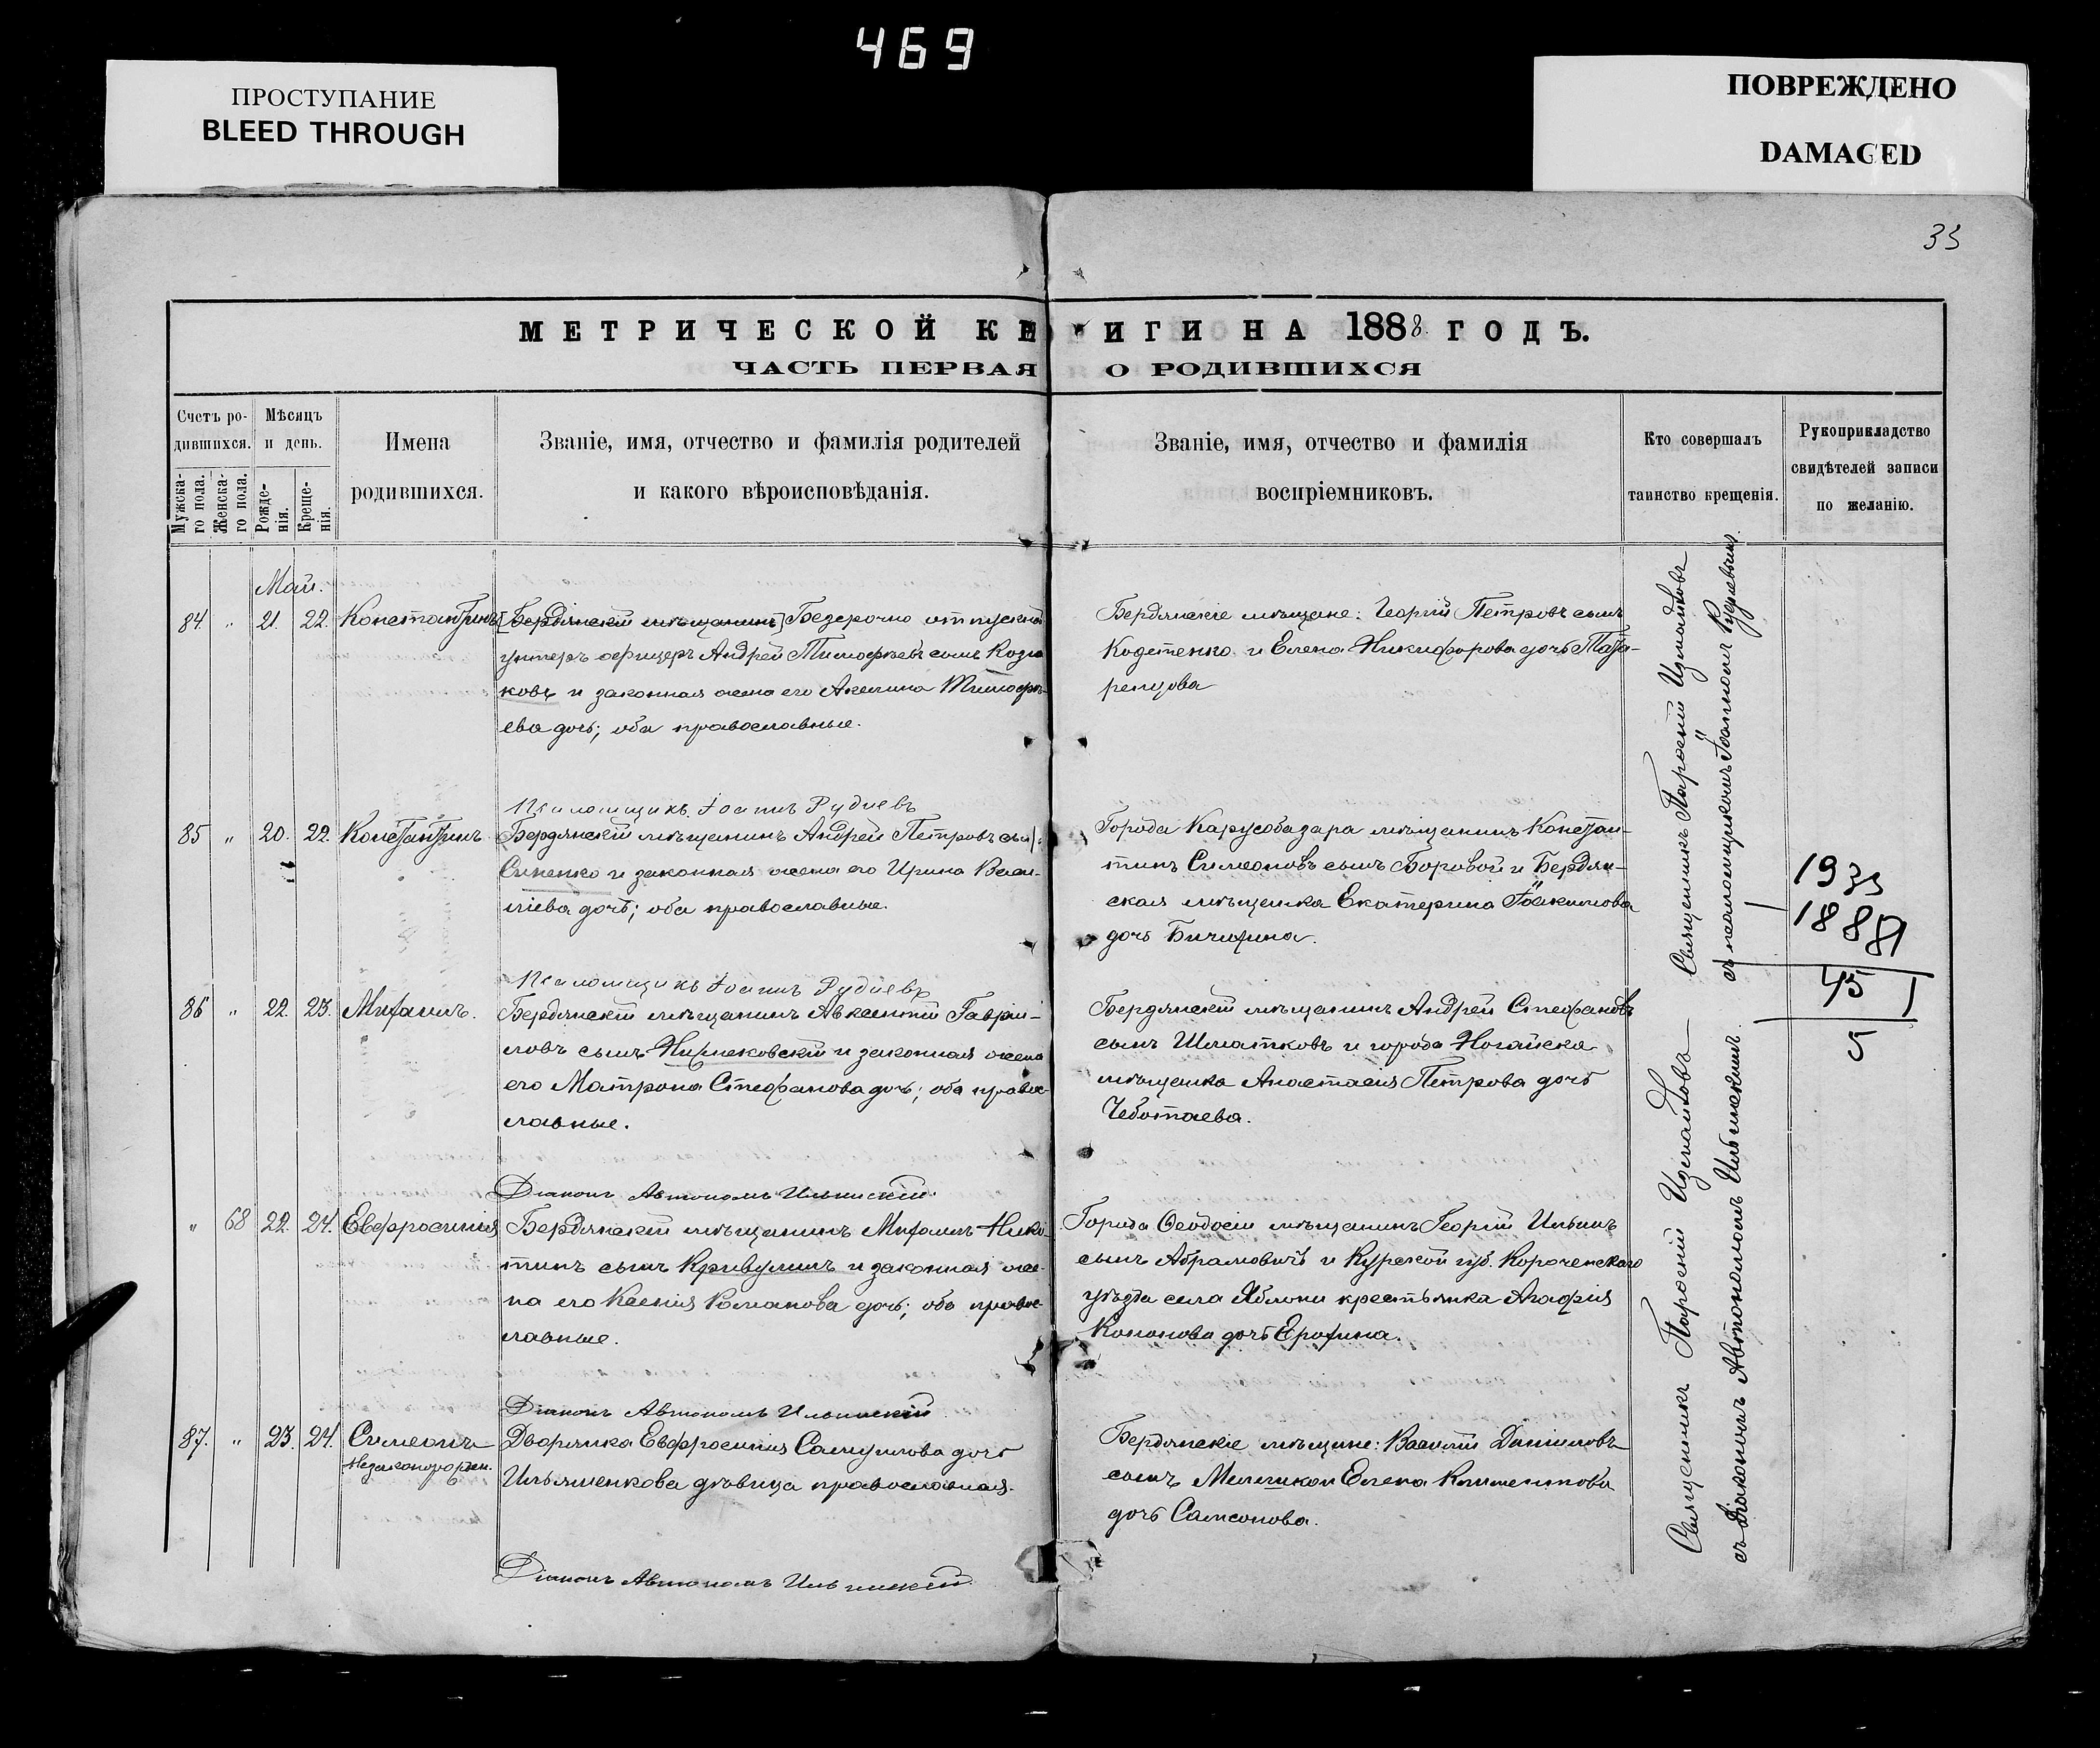 469
ПРОСТУПАНИЕ
BLEED THROUGH
ПОВРЕЖДЕНО
DAMAGED
33
МЕТРИЧЕСКОЙ КНИГИ НА 1888 ГОДЪ.
ЧАСТЬ ПЕРВАЯ О РОДИВШИХСЯ
Счетъ ро-
дившихся.
Мужска-
го пола.
Женска-
го пола.
Мѣсяцъ
и день.
Рожде-
нія.
Креще-
нія.
Имена
родившихся.
Званіе, имя, отчество и фамилія родителей
и какого вѣроисповѣданія.
Званіе, имя, отчество и фамилія
воспріемниковъ.
Кто совершалъ
таинство крещенія.
Рукоприкладство
свидѣтелей записи
по желанію.
Май.
84. " 21. 22. Константинъ
[Бердянскій мѣщанинъ] Безсрочно отпускной
унтеръ офицеръ Андрей Тимофеевъ сынъ Козла
ковъ и законная жена его Акилина Тимофѣ-
ева дочь; оба православные.
Бердянскіе мѣщане: Георгій Петровъ сынъ
Костенко и Елена Никифорова дочь Тата-
ренцова
Псаломщикъ Іоаннъ Рудневъ
85 " 20. 22. Константинъ.
Бердянскій мѣщанинъ Андрей Петровъ сынъ
Синенко и законная жена его Ирина Васи-
ліева дочь; оба православные.
Города Карасубазара мѣщанинъ Констан-
тинъ Симеоновъ сынъ Боровой и Бердян-
ская мѣщанка Екатерина Іоакимова
дочь Бичихина.
Псаломщикъ Іоаннъ Рудневъ
86 " 22. 23. Михаилъ.
Бердянскій мѣщанинъ Авксентій Гаврі-
ловъ сынъ и законная жена
его Матрона Стефанова дочь; оба право-
славные.
Бердянскій мѣщанинъ Андрей Стефановъ
сынъ Шматковъ и города Ногайска
мѣщанка Анастасія Петрова дочь
Чеботаева.
Діаконъ Автономъ Ильинскій.
" 68 22. 24. Евфросинія
Бердянскій мѣщанинъ Михаилъ Ники
тинъ сынъ Кривулинъ и законная же-
на его Ксенія Романова дочь; оба право-
славные.
Города Ѳеодосіи мѣщанинъ Георгій Ильинъ
сынъ Абрамовичъ и Курской губ. Короченскаго
уѣзда села Яблони крестьянка Агафія
Кононова дочь Ерохина.
Діаконъ Автономъ Ильинскій
87. " 23. 24. Симеонъ
Незаконорожден.
Дворянка Евфросинія Самуилова дочь
Ильяшенкова дѣвица православная.
Бердянскіе мѣщане: Василій Даниловъ
сынъ Елена Климентова
дочь Самсонова.
Діаконъ Автономъ Ильинскій.
Священникъ Парѳеній
съ псаломщикомъ Іоанномъ
Священникъ Парѳеній
съ Діакономъ Автономомъ Ильинскимъ.
1933
1888
45
5